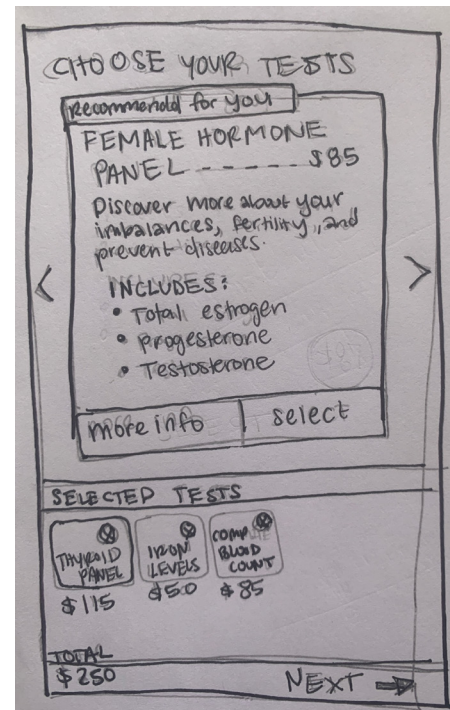 CHOOSE YOUR TESTS
Recommended for you
FEMALE HORMONE
PANEL ------ $85
Discover more about your
imbalances, fertility, and
prevent diseases.
INCLUDES:
• Total estrogen
• Progesterone
• Testosterone
more info
select
<
>
SELECTED TESTS
THYROID
PANEL
$115
IRON
LEVELS
$50
COMP
BLOOD
COUNT
$85
TOTAL
$250
NEXT →